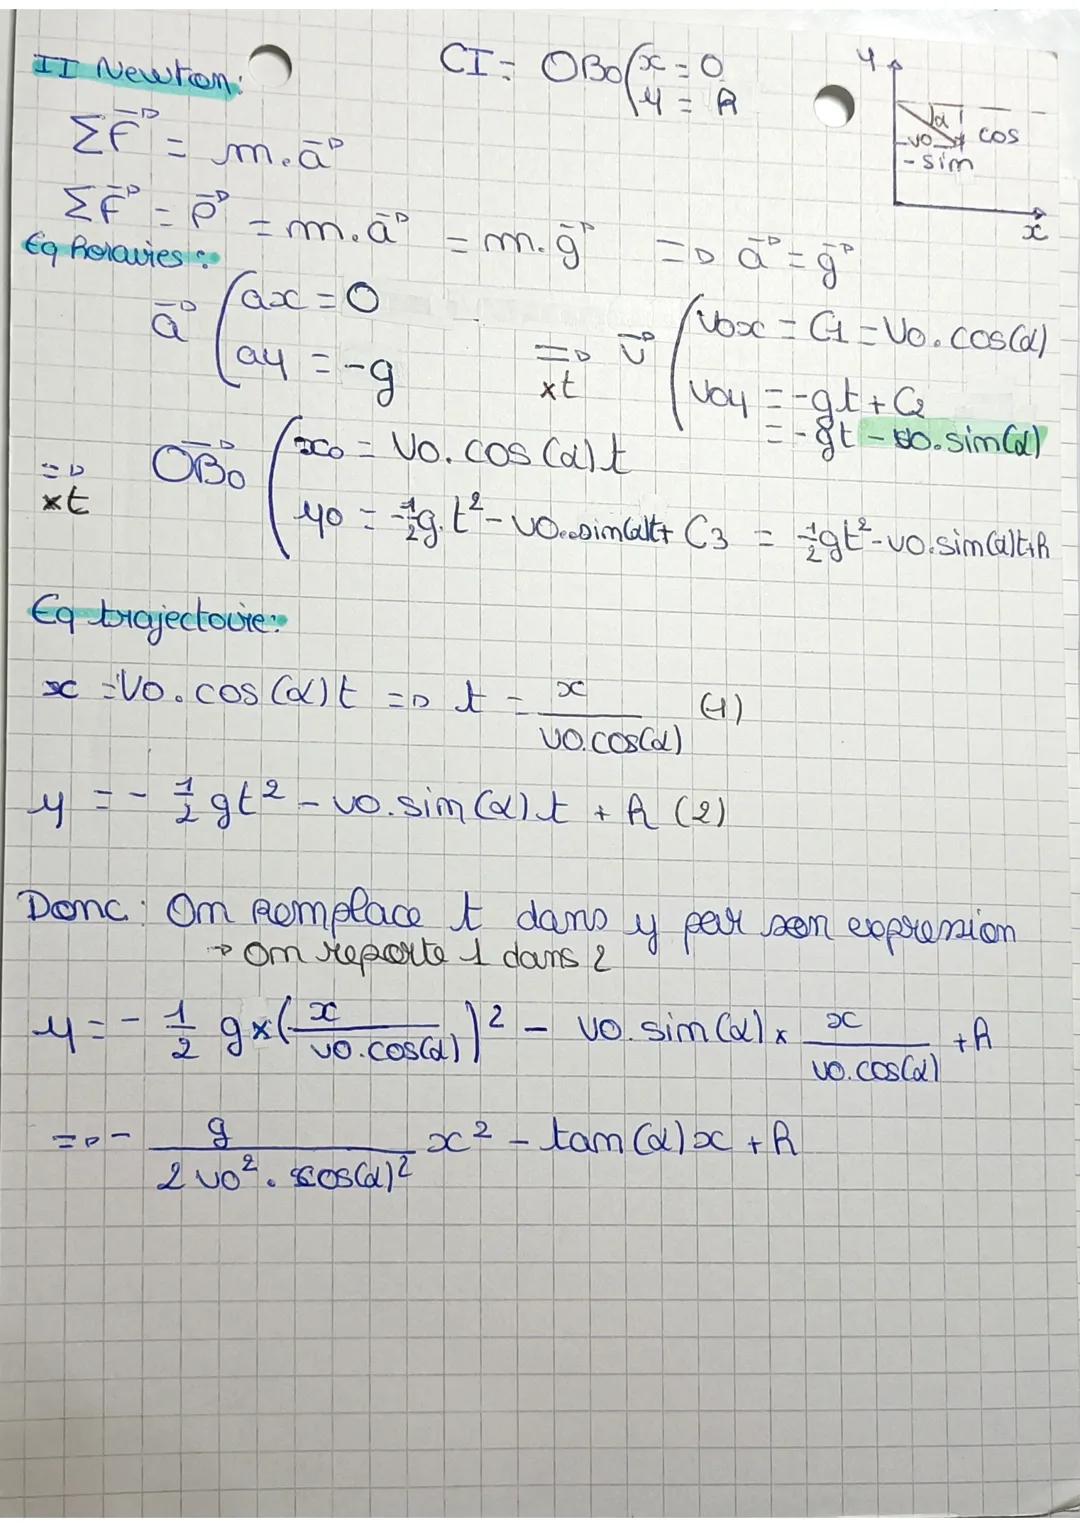 II Newton:
CI = OB₀ ( x = 0
y = R
y
α
v0
cos
- sim
x
ΣF⃗ = m.a⃗
ΣF⃗ = P⃗ = m.a⃗ = m.g⃗ => a⃗ = g⃗
Eq horaires :
a⃗ ( ax = 0
ay = -g
=> xt
v⃗ ( v0x = C1 = V0.cos(α)
v0y = -gt + C2
= -gt - v0.sim(α)
=> xt
OB₀⃗ ( x0 = V0.cos(α)t
y0 = -½g.t² - v0.sim(α)t + C3 = -½gt² - v0.sim(α)t+R
Eq trajectoire:
x = V0.cos(α)t => t = x / v0.cos(α) (1)
y = - ½ gt² - v0.sim(α)t + R (2)
Donc : Om remplace t dans y par son expression
→ om reporte 1 dans 2
y = - ½ g×( x / v0.cos(α) )² - v0.sim(α) × x / v0.cos(α) + R
=> - g / 2v0².cos(α)² x² - tam(α)x + R